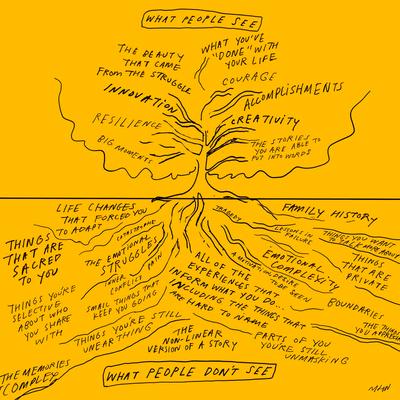 WHAT PEOPLE SEE
THE BEAUTY
THAT CAME
FROM THE STRUGGLE
WHAT YOU'VE
"DONE" WITH
YOUR LIFE
COURAGE
INNOVATION
ACCOMPLISHMENTS
RESILIENCE
CREATIVITY
BIG MOMENTS
THE STORIES
YOU ARE ABLE TO
PUT INTO WORDS
LIFE CHANGES
THAT FORCED YOU
TO ADAPT
TRAGEDY
FAMILY HISTORY
CATASTROPHE
LESSONS IN
FAILURE
THINGS YOU WANT
TO TALK MORE ABOUT
THINGS
THAT ARE
SACRED
TO YOU
THE EMOTIONAL
STRUGGLES
EMOTIONAL
COMPLEXITY
THINGS
THAT ARE
PRIVATE
INNER
CONFLICT
PAIN
TO BE SEEN
ALL OF THE
EXPERIENCES THAT
INFORM WHAT YOU DO...
INCLUDING THE THINGS THAT
ARE HARD TO NAME
THINGS YOU'RE
SELECTIVE
ABOUT WHO
YOU SHARE
WITH
SMALL THINGS THAT
KEEP YOU GOING
BOUNDARIES
THINGS YOU'RE STILL
UNEARTHING
THE
NON-LINEAR
VERSION OF A STORY
PARTS OF YOU
YOU'RE STILL
UNMASKING
THE THINGS
YOU APPRECIATE
THE MEMORIES
COMPLEX
WHAT PEOPLE DON'T SEE
MHN